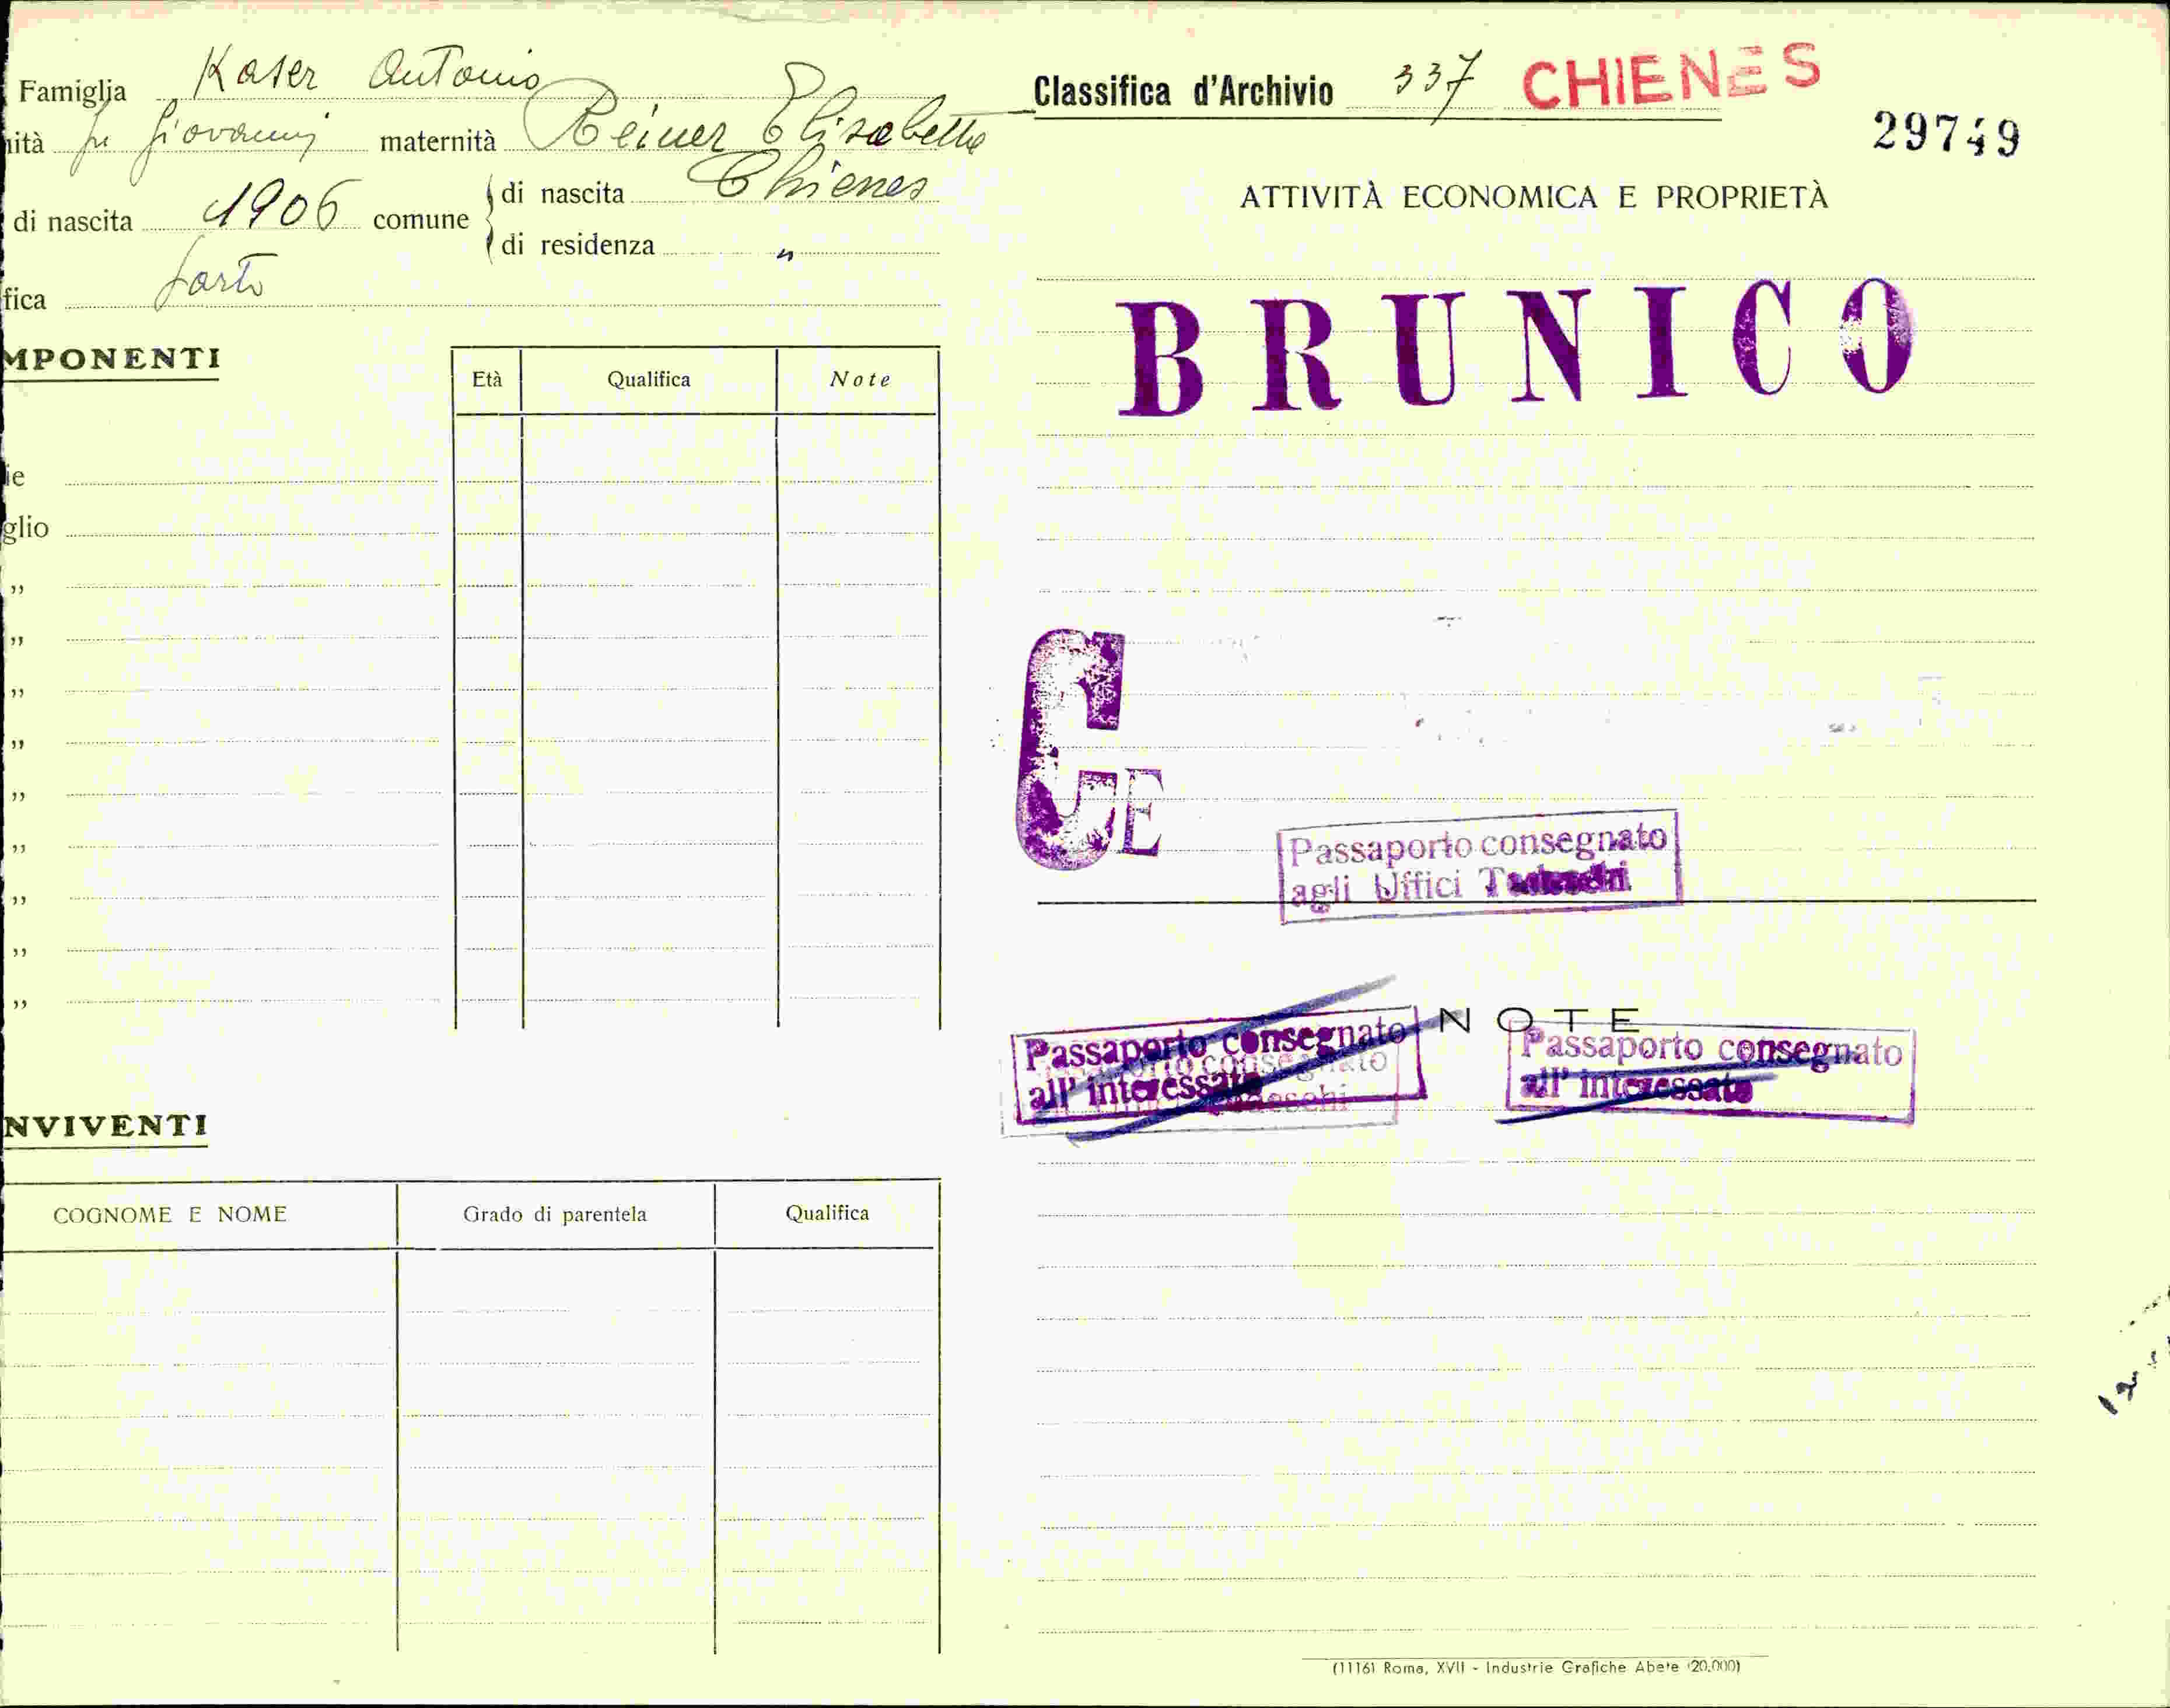 Famiglia Kaser Antonio
ità fu Giovanni maternità Reiner Elisabetta
di nascita 1906 comune di nascita Chienes
di residenza "
fica Sarto
MPONENTI
Età Qualifica Note
ie
glio
"
"
"
"
"
"
"
"
"
NVIVENTI
COGNOME E NOME Grado di parentela Qualifica
Classifica d'Archivio 337 CHIENES
29749
ATTIVITÀ ECONOMICA E PROPRIETÀ
BRUNICO
CE
Passaporto consegnato
agli Uffici Tedeschi
NOTE
Passaporto consegnato
all' interessato
Passaporto consegnato
all' interessato
(1116) Roma, XVII - Industrie Grafiche Abete (20.000)